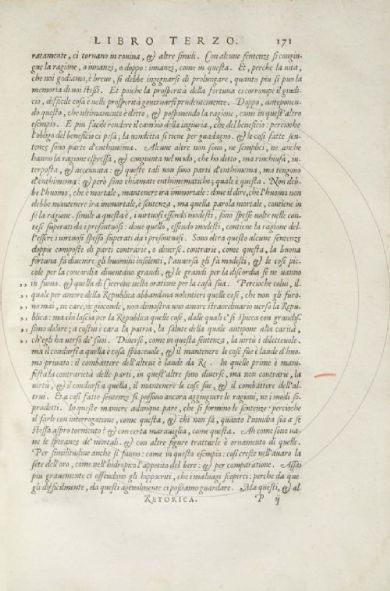 LIBRO TERZO. 171
ratamente, ci tornano in rouina, & altre simili. Con alcune sentenze si congiun-
ge la ragione, o innanzi, o doppo: innanzi, come in questa. Et, perche la uita,
che noi godiamo, è breue, si debbe ingegnarsi di prolungare, quanto piu si puo la
memoria di noi stessi. Et poiche la prosperità della fortuna ci corrompe il giudi-
cio, difficile cosa è nelle prosperità gouernarsi prudentemente. Doppo, anteponen-
do questo, che ultimamente è detto, & posponendo la ragione, come in quest'altro
esempio. E piu facile rendere il cambio della ingiuria, che del beneficio: percioche
l'obligo del beneficio ci pesa, la uendetta si tiene per guadagno. & le cosi fatte sen-
tenze sono parte d'enthimema. Alcune altre non sono, ne semplici, ne anche
hanno la ragione espressa, & congiunta nel modo, che ho detto, ma rinchiusa, in-
terposta, & & queste tali non sono parti d'enthimema, ma tengono
d'enthimema: & però sino chiamate enthimematiche; quale è questa. Non deb-
be l'huomo, che è mortale, mantenere ira immortale: doue il dire, che l'huomo non
debbe mantenere ira immortale, è sentenza, ma quella parola mortale, contiene in
se la ragione. simile a questa è, i uirtuosi essendo modesti, sono spesse uolte nelle con-
tese superati da i prosontuosi: doue quello, essendo modesti, contiene la ragione del-
l'essere i uirtuosi spesso superati da i prosontuosi. Sono oltra questo alcune sentenze
doppie composte di parti contrarie, o diuerse. contrarie, come questa, la buona
fortuna fa diuenire gli huomini insolenti, l'auuersa gli fa modesti, & le cose pic-
cole per la concordia diuentano grandi, & le grandi per la discordia se ne uanno
in fumo. & quella di Cicerone nella oratione per la casa sua. Percioche colui, il
quale per amore della Republica abbandona uolentieri quelle cose, che non gli furo-
no mai, ne care, ne gioconde, non dimostra uno amore straordinario uerso la Repu-
blica: ma chi lascia per la Republica quelle cose, dalle quali e' si spicca con grandis-
simo dolore; a costui è cara la patria, la salute della quale antipone alla carità,
ch'egli ha uerso de' suoi. Diuerse, come in questa sentenza, la uirtù è diletteuole,
ma il condursi a quella è cosa spiaceuole, & il mantenere le cose sue è laude d'huo-
mo priuato: il combattere dell'altrui è laude da Re. In quelle prime è mani-
festa la contrarietà delle parti, in quest'altre sono diuerse, ma non contrarie, la
uirtù, & il condursi a quella, il mantenere le cose sue, & il combattere dell'al-
trui. Et a cosi fatte sentenze si possono ancora aggiungere le ragioni, ne i modi so-
pradetti. In queste maniere adunque pare, che si formino le sentenze: percioche
il farle con interrogatione, come questa, & chi non sà, quanto l'inuidia sia a se
stessa aspro tormento? & con certa marauiglia, come questa. Ahi come sono ua-
ne le speranze de' mortali. & con altre figure trattarle è ornamento di quelle.
Per similitudine anche si fanno: come in questo esempio: cosi cresce nell'auaro la
sete dell'oro, come nell'hidropico l'appetito del bere: & per comparatione. Assai
piu grauemente ci offendono gli hippocriti, che i maluagi scoperti: perche da que-
gli difficilmente, da questi ageuolmente ci possiamo guardare. Ma questi, & al
RETORICA. P ij